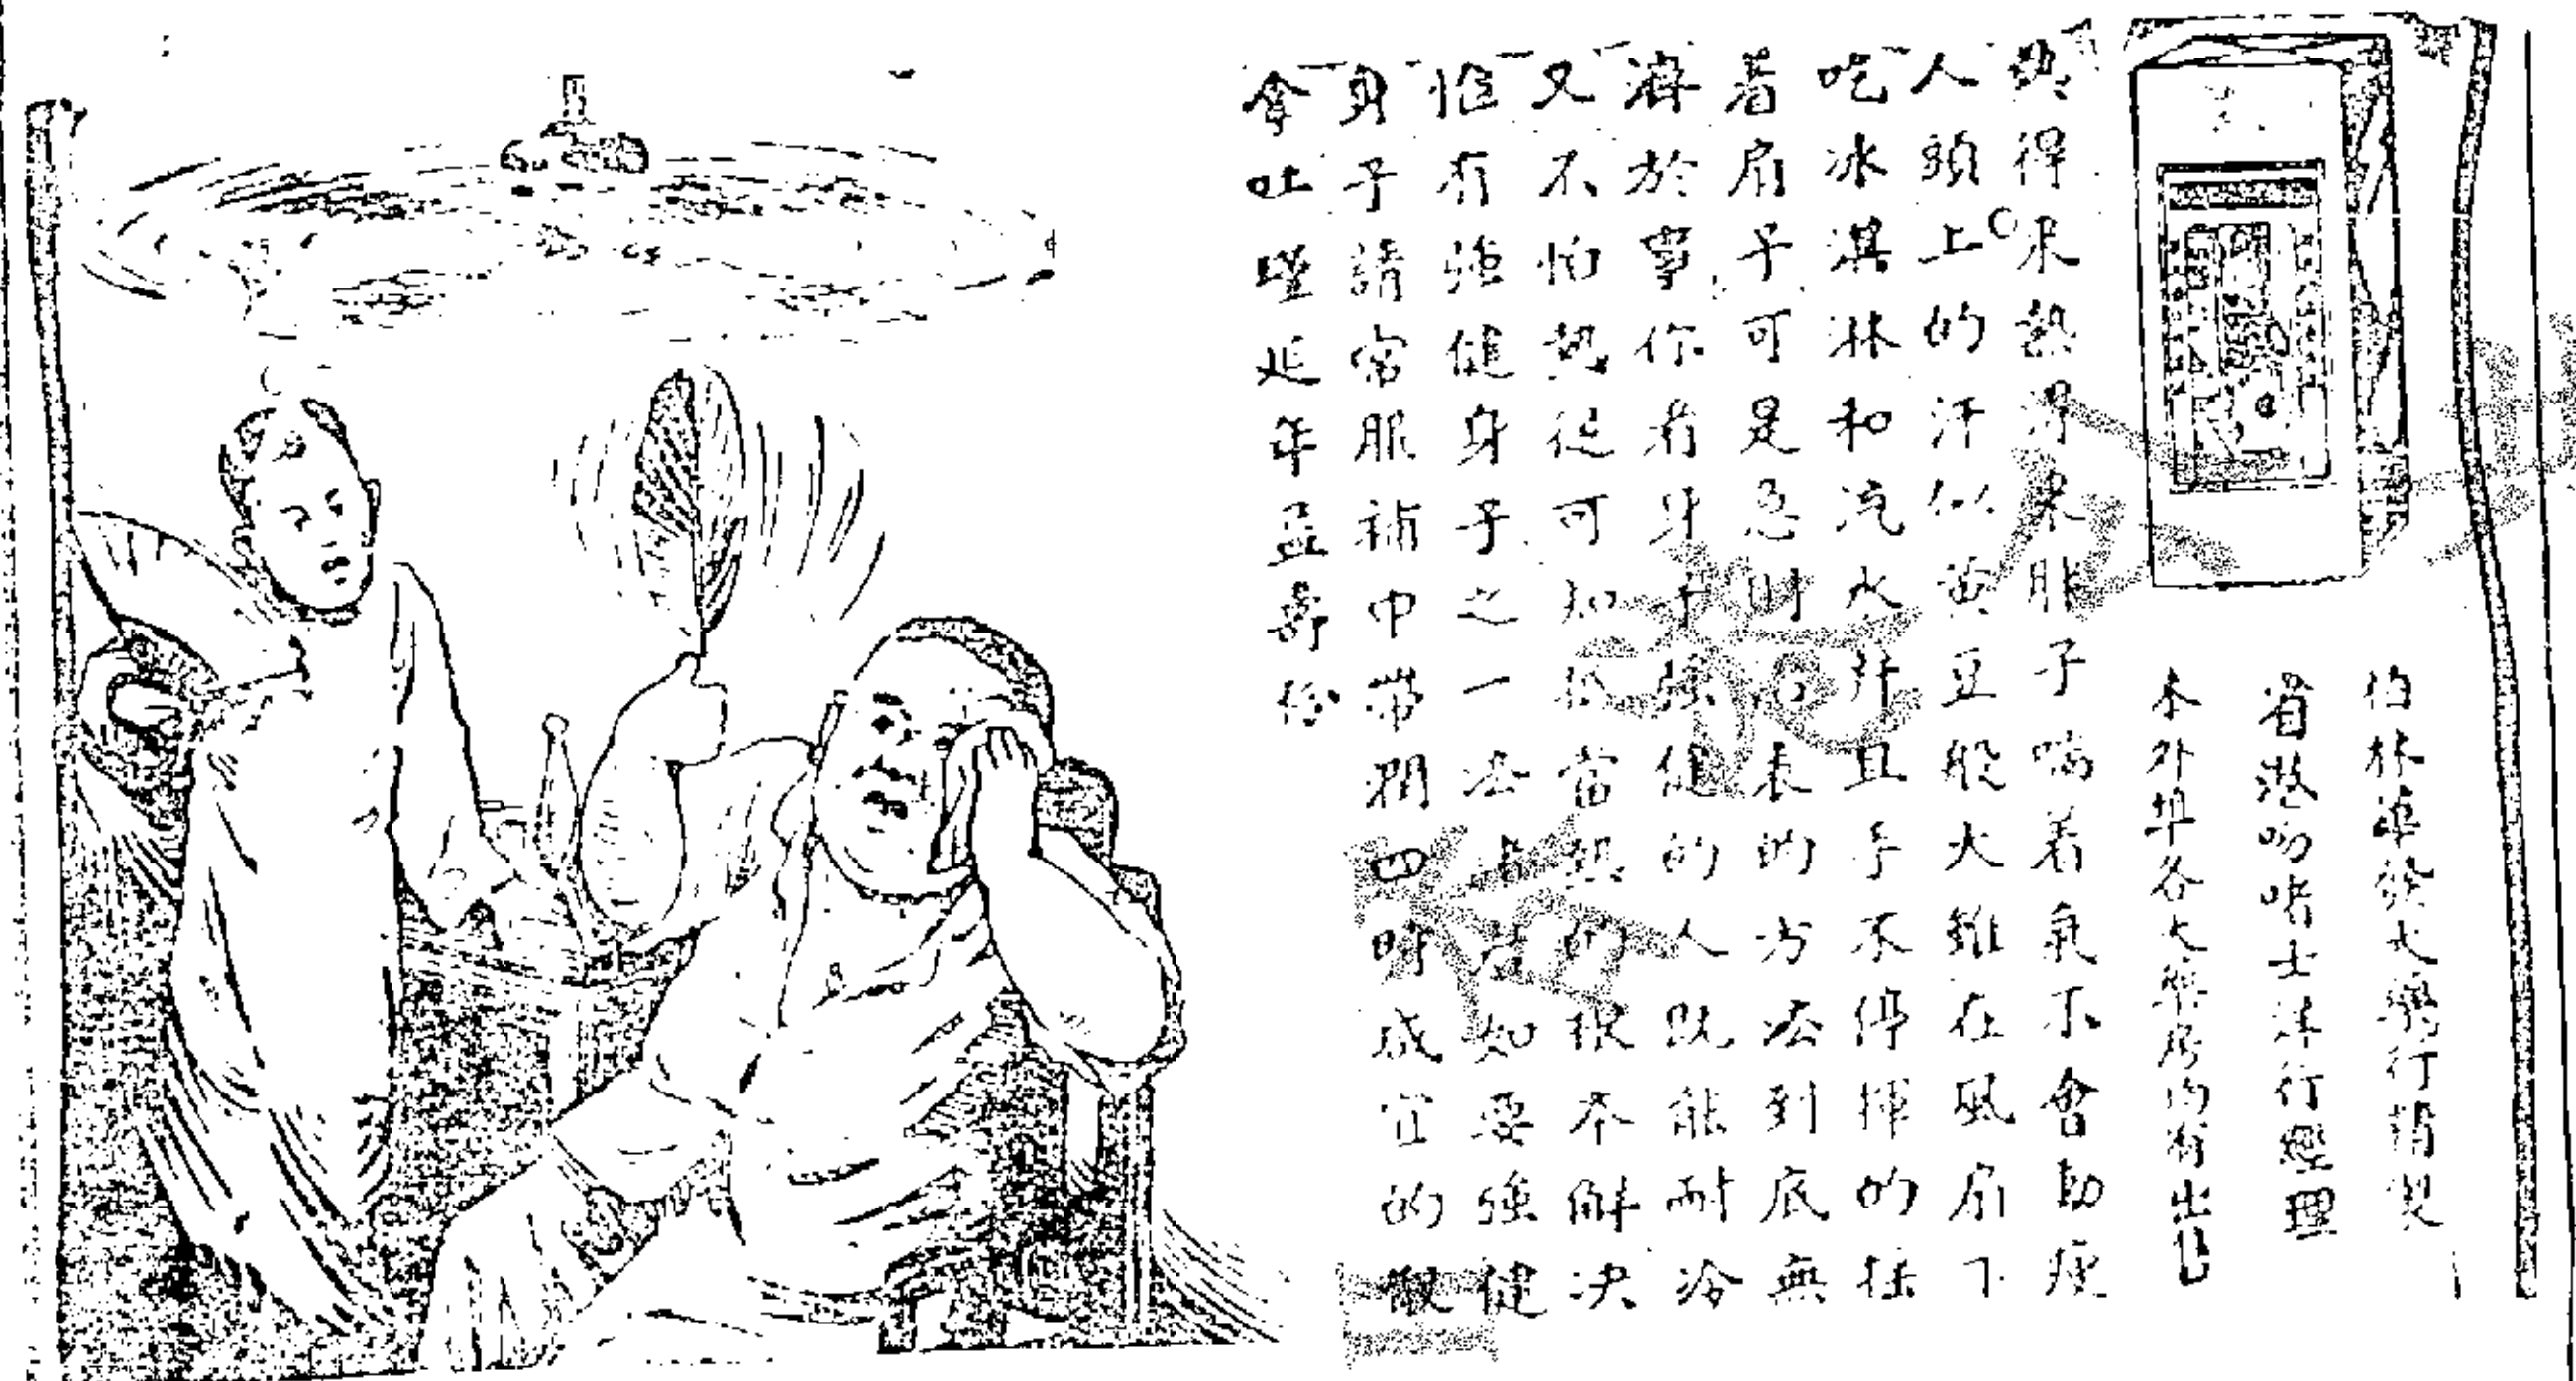 伯林華發大藥行謹製
省港吻啫士洋行經理
本外埠各大藥房均有出售
熱得來熱得來胖子喘着氣不會動瘦
人頭上的汗似黃豆般大雖在風扇下
吃冰淇淋和汽水并且手不停揮的搖
着扇子可是急時治表的方法到底無
濟於事你看身子強健的人既能耐冷
又不怕熱從可知 當熱的根本解決
惟有強健身子之一法 如要強健
身子請常服補中帶潤四時咸宜的散
拿吐瑾延年益壽份